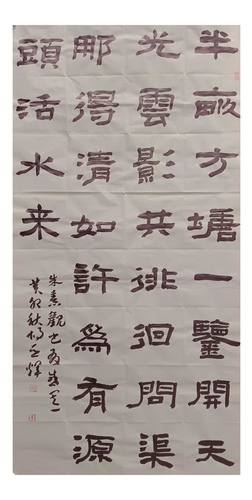 半畝方塘一鑒開天
光雲影共徘徊問渠
那得清如許爲有源
頭活水来
朱熹觀书有感其一
癸卯秋